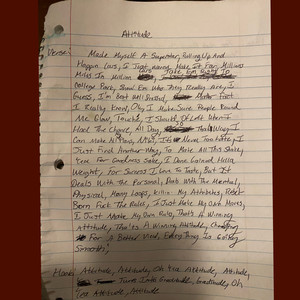 Attitude
Verse: Made Myself A Superstar, Pulling Up And
Foreign Cars, I Just Wanna Make It Far, Millions
Miles In Million Cars, Take Em Right To
College Park, Show Em Who They Really Are, I
Guess, I'm Best Well Served, Matter Fact
I Really Know, Only I Make Sure People Round
Me Glow, Touche, I Should Of Left When I
Had The Chance, All Day, That Way I
Can Make Always, Mha, It's Never Too Late, I
Just Find Another Way, To Make All This Shake,
Here For Goodness Sake, I Done Gained Hella
Weight, For Success I Love To Taste, But It
Deals With The Personal, Deals With The Mental,
Physical, Many Loops, Killin My Attributes,
Born Fuct The Rules, I Just Make My Own Moves,
I Just Make My Own Rules, That's A Winning
Attitude, That's A Winning Attitude, Changing
For A Better View, Everything Is Going
Smoothly,
Hook: Attitude, Attitude, Oh The Attitude, Attitude,
Turns Into Gratitude, Gratitude, Oh
The Attitude, Attitude